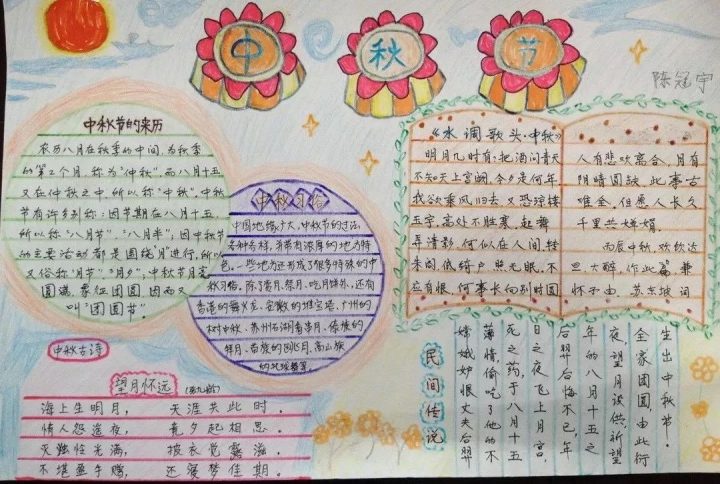 中秋节
陈冠宇
中秋节的来历
农历八月在秋季的中间,为秋季
的第2个月,称为"仲秋",而八月十五
又在仲秋之中,所以称"中秋"。中秋
节有许多别称:因节期在八月十五,
所以称"八月节"、"八月半";因中秋节
的主要活动都是围绕"月"进行,所以
又俗称"月节"、"月夕",中秋节月亮
圆满,象征团圆,因而又
叫"团圆节"
中秋习俗
中国地缘广大,
各种各样,并带有浓厚的地方特
色。一些地方还形成了很多特殊的中
秋习俗。除了赏月、祭月、吃月饼外,还有
香港的舞火龙、安徽的堆宝塔、广州的
树中秋、
拜月、苗族的跳月、高山族
中秋古诗
望月怀远
海上生明月, 天涯共此时。
情人怨遥夜, 竟夕起相思。
灭独怜光满, 披衣觉露滋。
不堪盈手赠, 还寝梦佳期。
《水调歌头·中秋》
明月几时有?把酒问青天
不知天上宫阙,今夕是何年,
我欲乘风归去,又恐琼楼
玉宇,高处不胜寒,起舞
弄清影,何似在人间,转
朱阁,低绮户,照无眠,不
应有恨,何事长向别时圆
人有悲欢离合,月有
阴晴圆缺,此事古
难全,但愿人长久
千里共婵娟。
丙辰中秋,欢饮达
旦,大醉,作此篇,兼
怀子由,苏东坡 词
生出中秋节。
全家团圆,由此衍
夜,望月设供,祈望
年的八月十五之
后羿后悔不已,年
日之夜飞上月宫,
死之药,于八月十五
薄情,偷吃了他的不
嫦娥妒恨丈夫后羿
民间传说